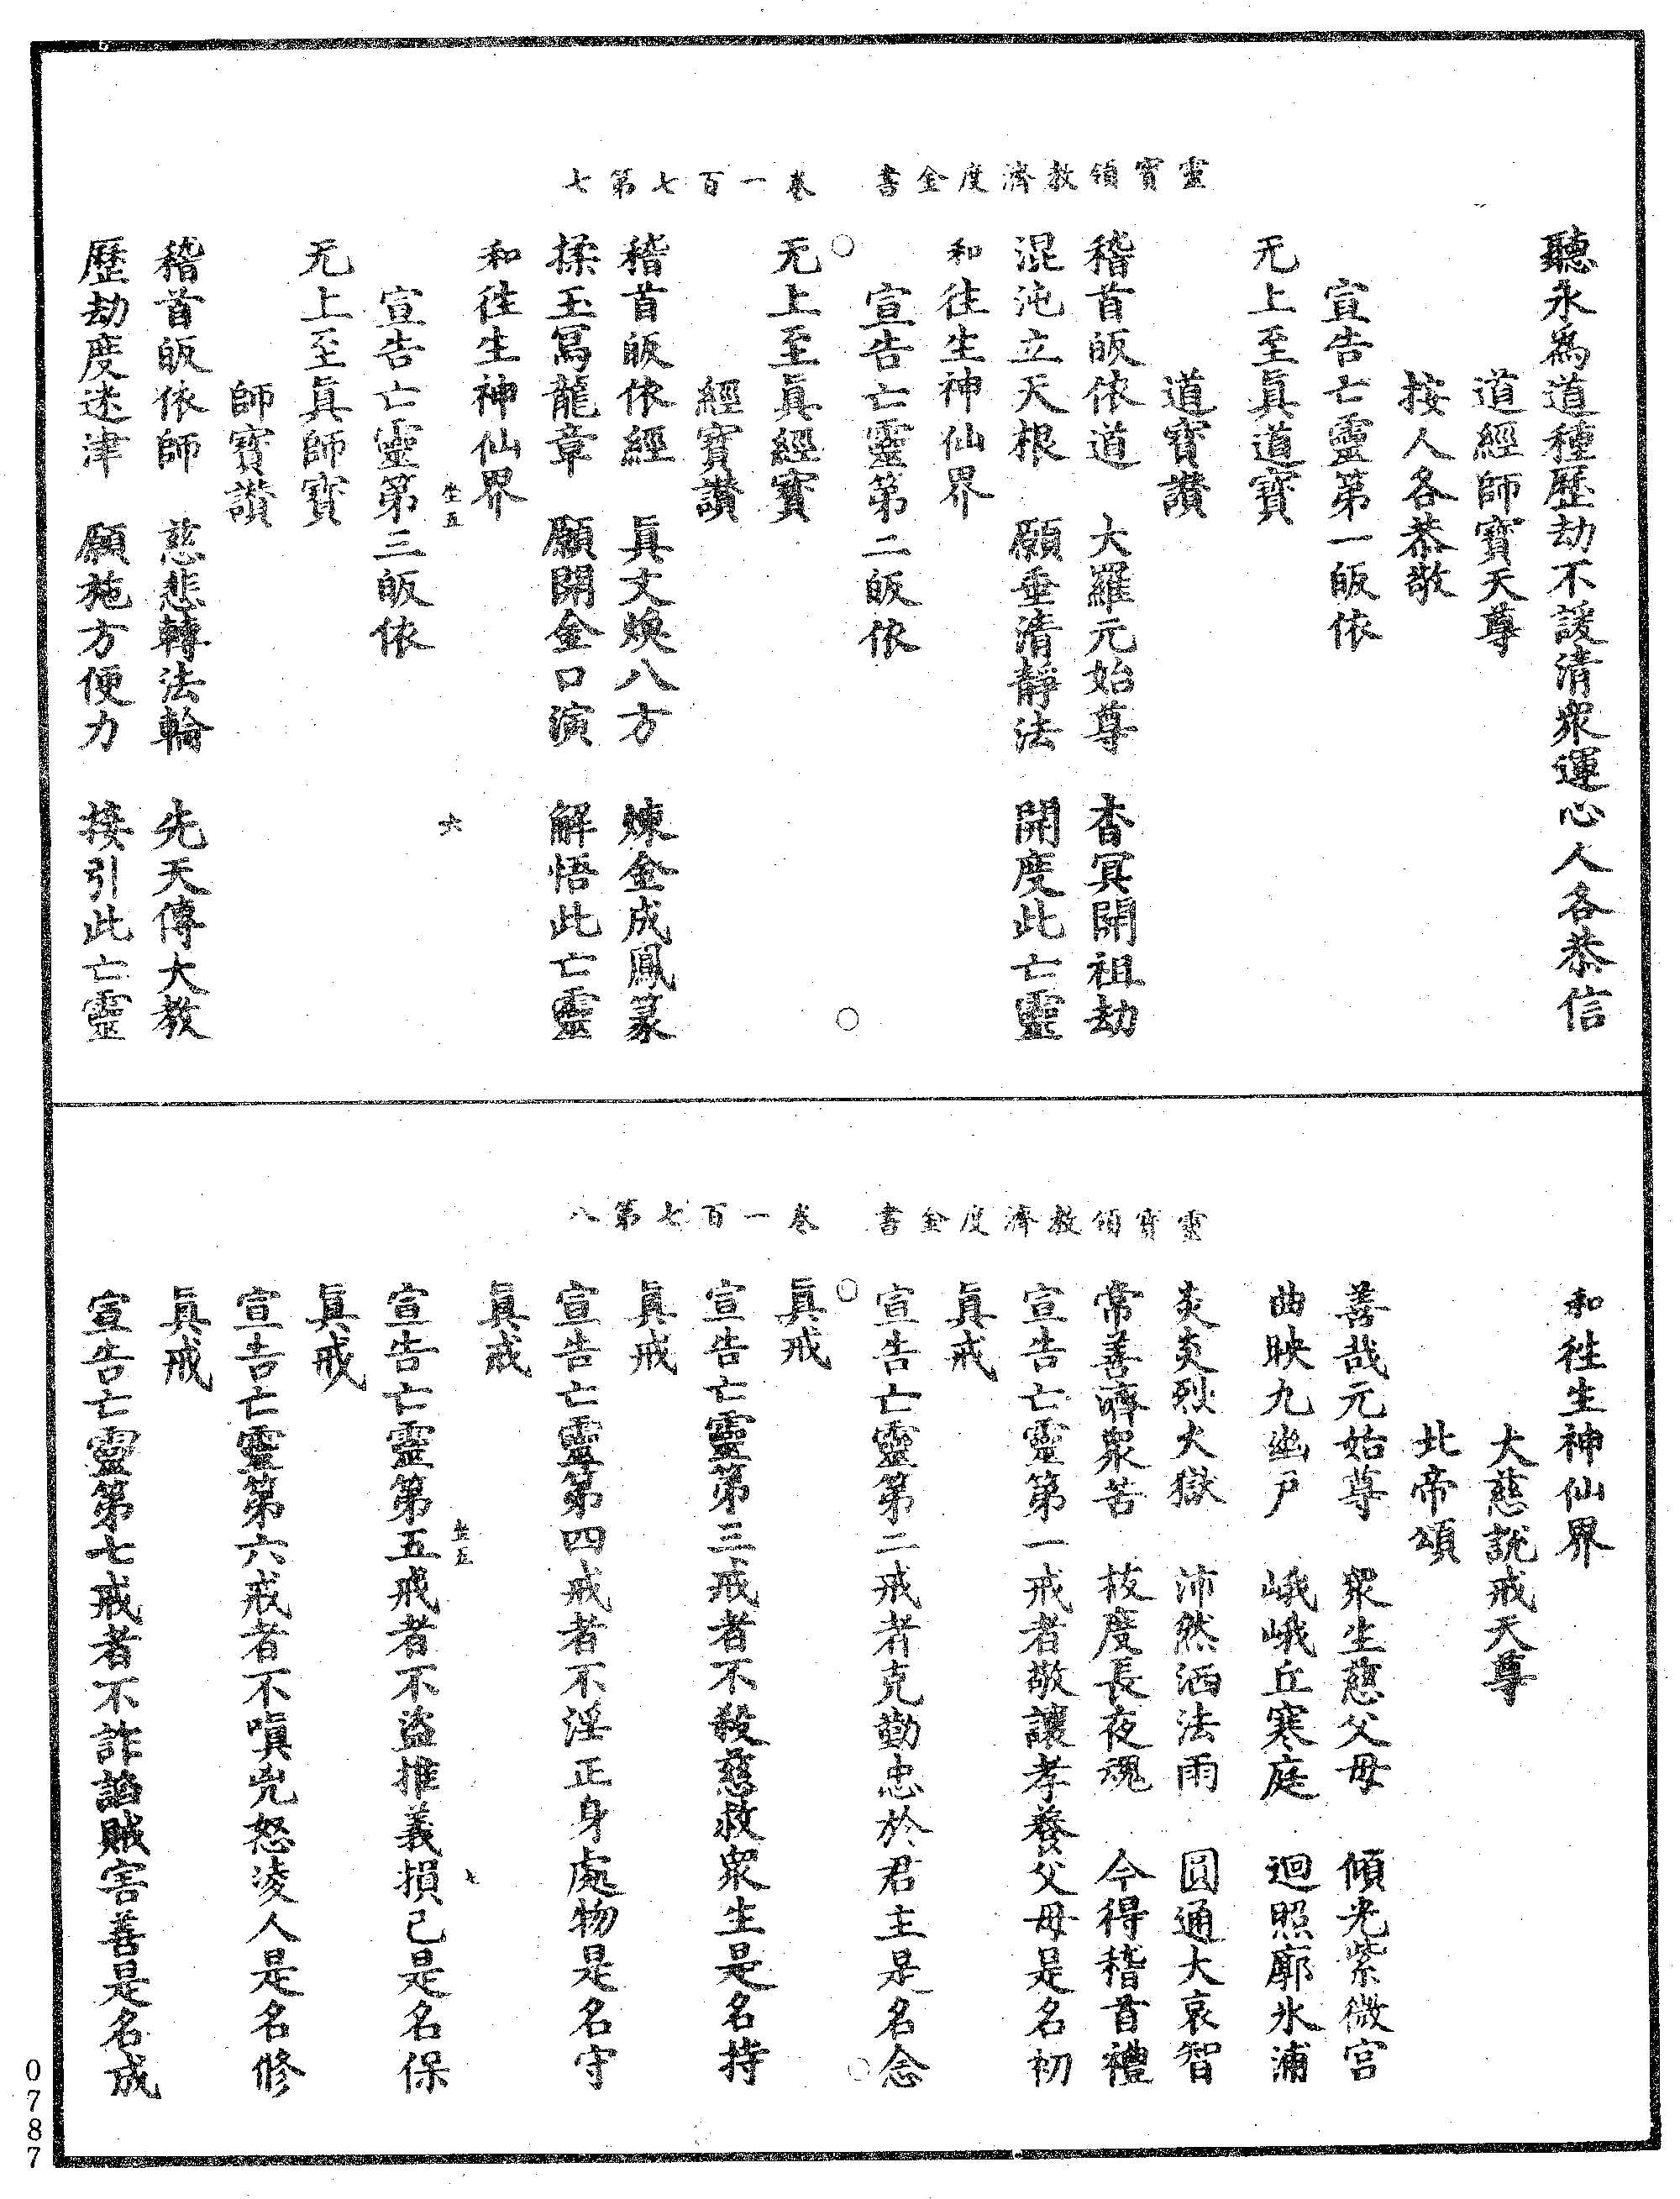 靈寶領教濟度金書　卷一百七第七
聽永爲道種歷劫不諼清衆運心人各恭信
道經師寶天尊
按人各恭敬
宣告亡靈第一皈依
无上至眞道寶
道寶讚
稽首皈依道　大羅元始尊　杳冥開祖劫
混沌立天根　願垂清靜法　開度此亡靈
和徃生神仙界
宣告亡靈第二皈依
无上至眞經寶
經寶讚
稽首皈依經　眞文煥八方　煉金成鳳篆
揉玉寫龍章　願開金口演　解悟此亡靈
和徃生神仙界
坐五　六
宣告亡靈第三皈依
无上至眞師寶
師寶讚
稽首皈依師　慈悲轉法輪　先天傳大教
歷劫度迷津　願施方便力　接引此亡靈
靈寶領教濟度金書　卷一百七第八
和徃生神仙界
大慈說戒天尊
北帝頌
善哉元始尊　衆生慈父母　傾光紫微宮
曲映九幽戶　峨峨丘寒庭　迴照廓氷浦
炎炎烈火獄　沛然洒法雨　圓通大哀智
常善濟衆苦　拔度長夜魂　今得稽首禮
宣告亡靈第一戒者敬讓孝養父母是名初
眞戒
宣告亡靈第二戒者克勤忠於君主是名念
眞戒
宣告亡靈第三戒者不殺慈救衆生是名持
眞戒
宣告亡靈第四戒者不淫正身處物是名守
眞戒
坐五　七
宣告亡靈第五戒者不盜推義損己是名保
眞戒
宣告亡靈第六戒者不嗔兇怒淩人是名修
眞戒
宣告亡靈第七戒者不詐諂賊害善是名成
0787